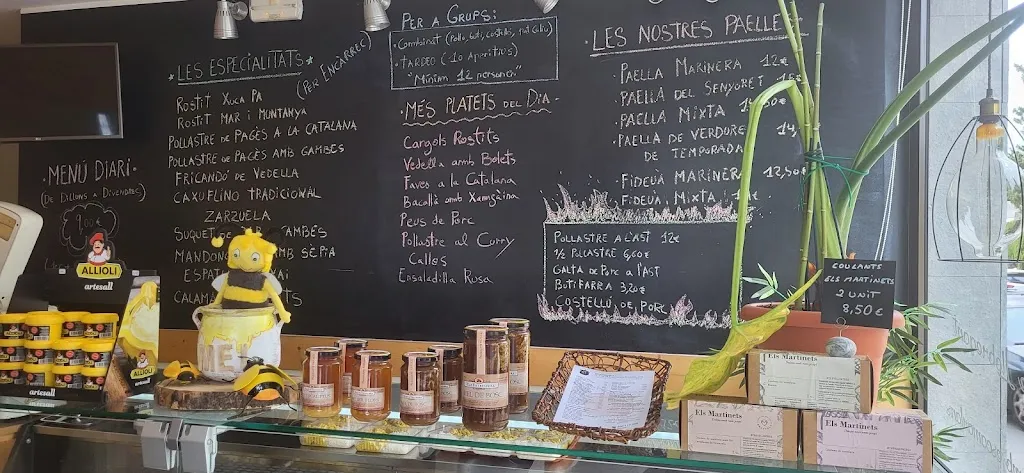 MENÚ DIARI.
(DE DILLUNS A DIVENDRES)
9,00€
ALLIOLI
artesall
LES ESPECIALITATS
(PER ENCÀRREC)
ROSTIT XUCA PA
ROSTIT MAR I MONTANYA
POLLASTRE DE PAGÈS A LA CATALANA
POLLASTRE DE PAGÈS AMB GAMBES
FRICANDÓ DE VEDELLA
CAXUELINO TRADICIONAL
ZARZUELA
SUQUET DE AMBES
MANDON MB SÈPIA
ESPAT
CALAM
PER A GRUPS:
·Combinat
·TARDEO (10 APERITIUS)
"Mínim 12 persones"
·MÉS PLATETS DEL DIA·
Cargols Rostits
Vedella amb Bolets
Faves a la Catalana
Bacallà amb Xamfaina
Peus de Porc
Pollastre al Curry
Callos
Ensaladilla Rusa
·LES NOSTRES PAELLE
·PAELLA MARINERA 12€
·PAELLA DEL SENYORET
·PAELLA MIXTA
·PAELLA DE VERDURE 14,
DE TEMPORADA
·FIDEUÀ MARINERA 12,50€
·FIDEUÀ MIXTA
POLLASTRE A L'AST 12€
1/2 POLLASTRE 6,60€
GALTA DE PORC A L'AST
BUTIFARRA 3,20€
COSTELLÓ DE PORC
COULANTS
ELS MARTINETS
2 UNIT
8,50€
Els Martinets
Els Martinets
Els Martinets
ALLIOLI
artesall
artesall